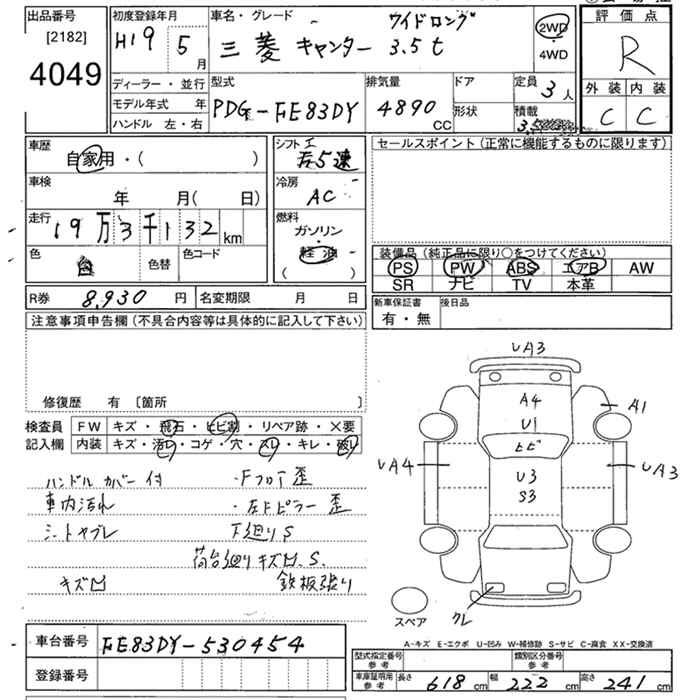 出品番号
[2182]
4049
初度登録年月
H19 5月
車名・グレード
ワイドロング
三菱 キャンター 3.5t
2WD
・
4WD
評価点
R
外装 内装
C C
ディーラー・並行
モデル年式 年
ハンドル 左・右
型式
PDG-FE83DY
排気量
4890
CC
ドア
形状
定員
3人
積載
3.5
車歴
自家用・( )
シフト
5速
セールスポイント(正常に機能するものに限ります)
車検
年 月( 日)
冷房
AC
走行
19万3千132km
燃料
ガソリン
・
軽油
( )
色
白
色替
色コード
装備品(純正品に限り○をつけてください)
PS PW ABS エアB AW
SR ナビ TV 本革
R券 8,930円
名変期限 月 日
新車保証書
有・無
後日品
注意事項申告欄(不具合内容等は具体的に記入して下さい)
修復歴 有 [箇所
検査員
記入欄
FW キズ・飛石・ヒビ割・リペア跡・×要
内装 キズ・汚レ・コゲ・穴・スレ・キレ・破レ
ハンドルカバー付 ・Fフロア歪
車内汚れ ・左Fピラー歪
シートヤブレ 下廻りS
荷台廻りキズ凹、S.
キズ凹 鉄板張り
UA3
A4
U1
A1
ヒビ
UA4
UA3
U3
S3
スペア
クレ
A-キズ E-エクボ U-凹み W-補修跡 S-サビ C-腐食 XX-交換済
車台番号 FE83DY-530454
登録番号
型式指定番号
参考
類別区分番号
参考
車庫証明用
参考
長さ 618cm 幅 222cm 高さ 241cm